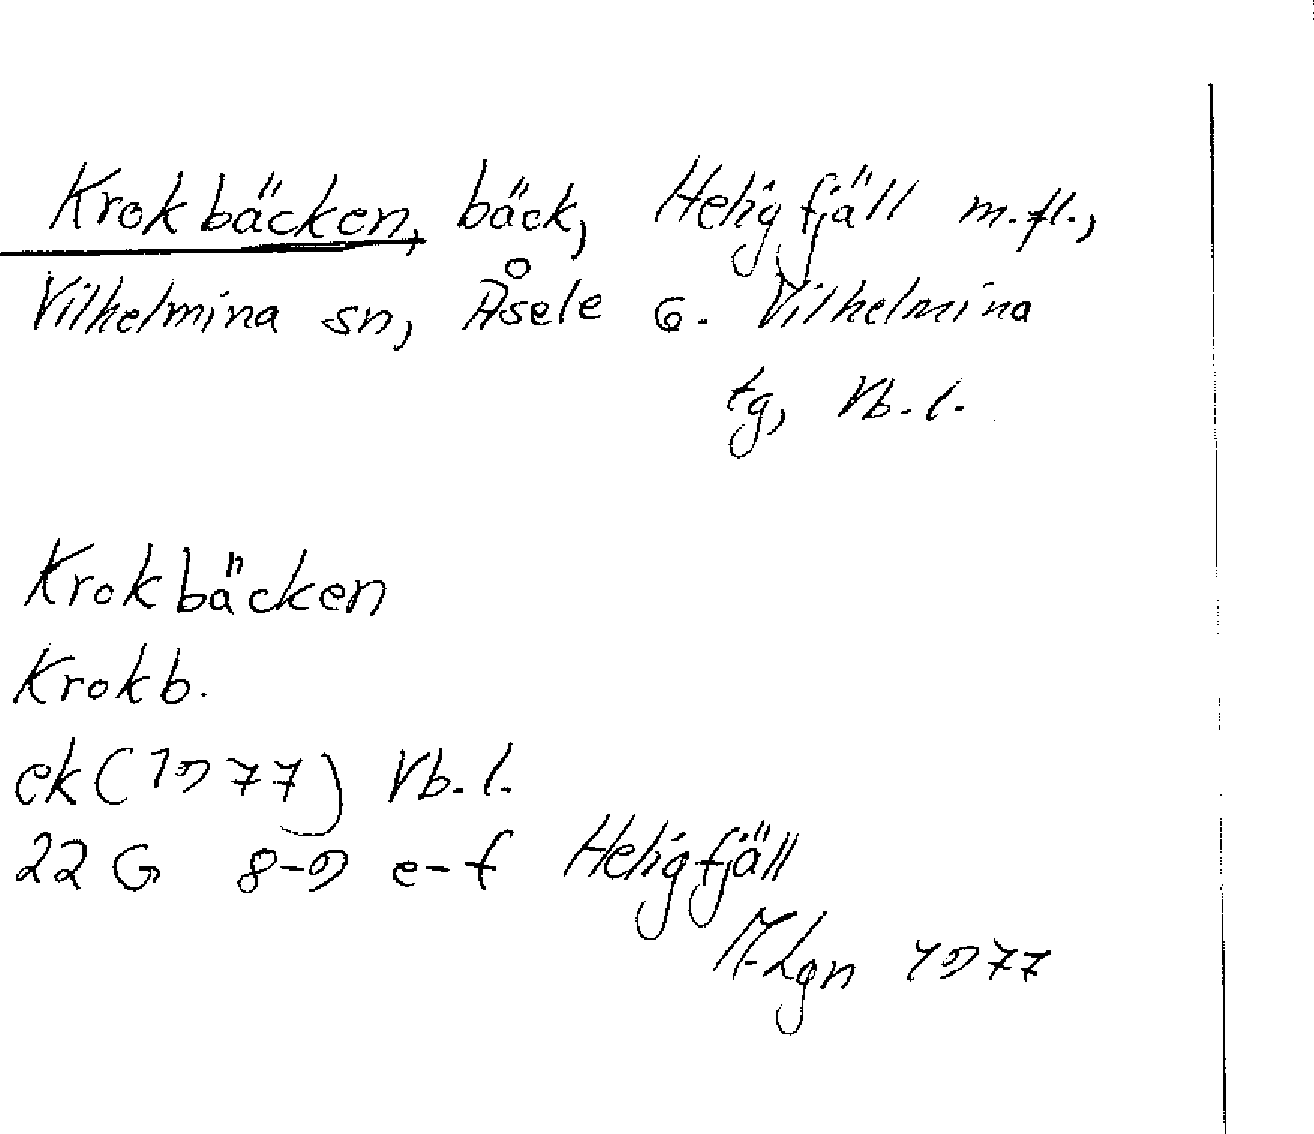 Krokbäcken, bäck, Heligfjäll m.fl.,
Vilhelmina sn, Åsele 6. Vilhelmina
tg, Vb.l.
Krokbäcken
Krokb.
ek(1977) Vb.l.
22 G 8-9 e-f Heligfjäll
1977